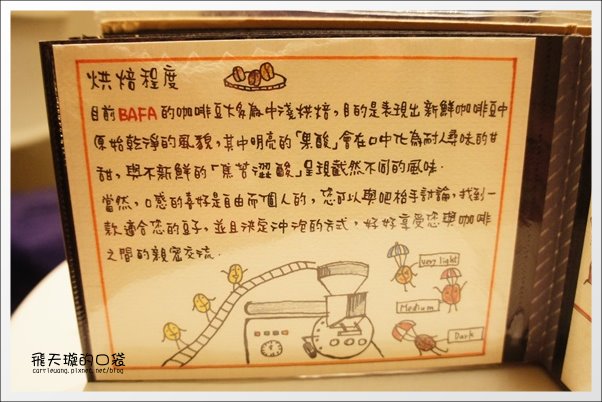 烘焙程度
目前BAFA的咖啡豆大多為中淺烘焙，目的是表現出新鮮咖啡豆中
原始乾淨的風貌，其中明亮的「果酸」會在口中化為耐人尋味的甘
甜，與不新鮮的「焦苦澀酸」呈現截然不同的風味．
當然，口感的喜好是自由而個人的，您可以與吧枱手討論，找到一
款適合您的豆子，並且決定沖泡的方式，好好享受您與咖啡
之間的親密交流．
very light
Medium
Dark
飛天璇的口袋
carrieuang.pixnet.net/blog